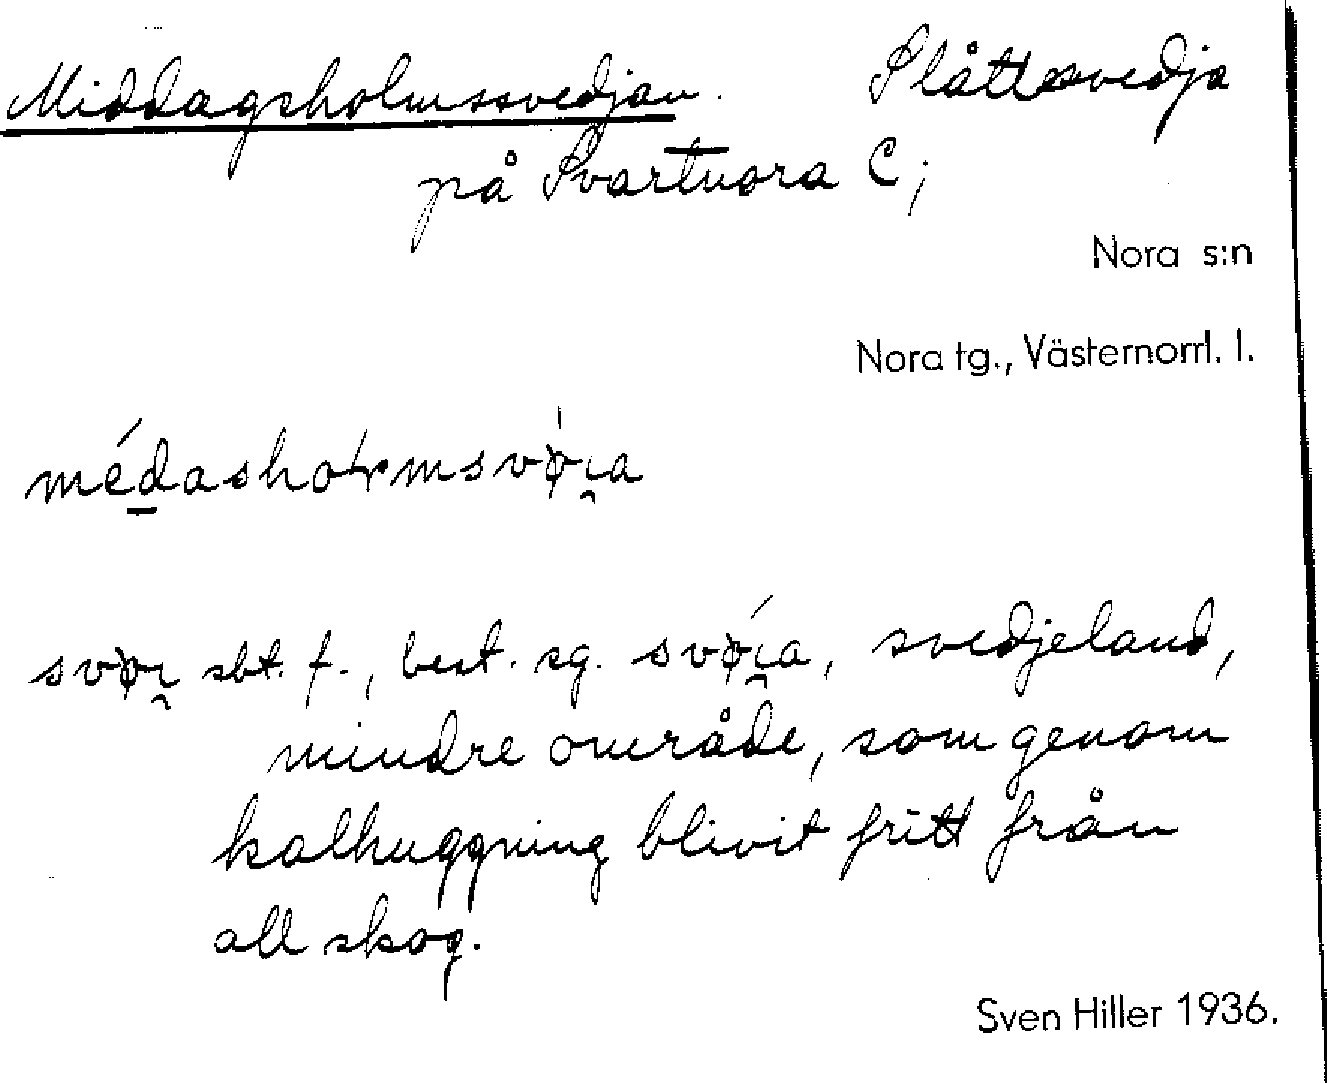 Middagsholmssvedjan. Slåttesvedja
på Svartnora C;
Nora s:n
Nora tg., Västernorrl. l.
médasholmsvø̀i̯a
svøi̯ sbt. f., best. sg. svǿi̯a, svedjeland,
mindre område, som genom
kalhuggning blivit fritt från
all skog.
Sven Hiller 1936.